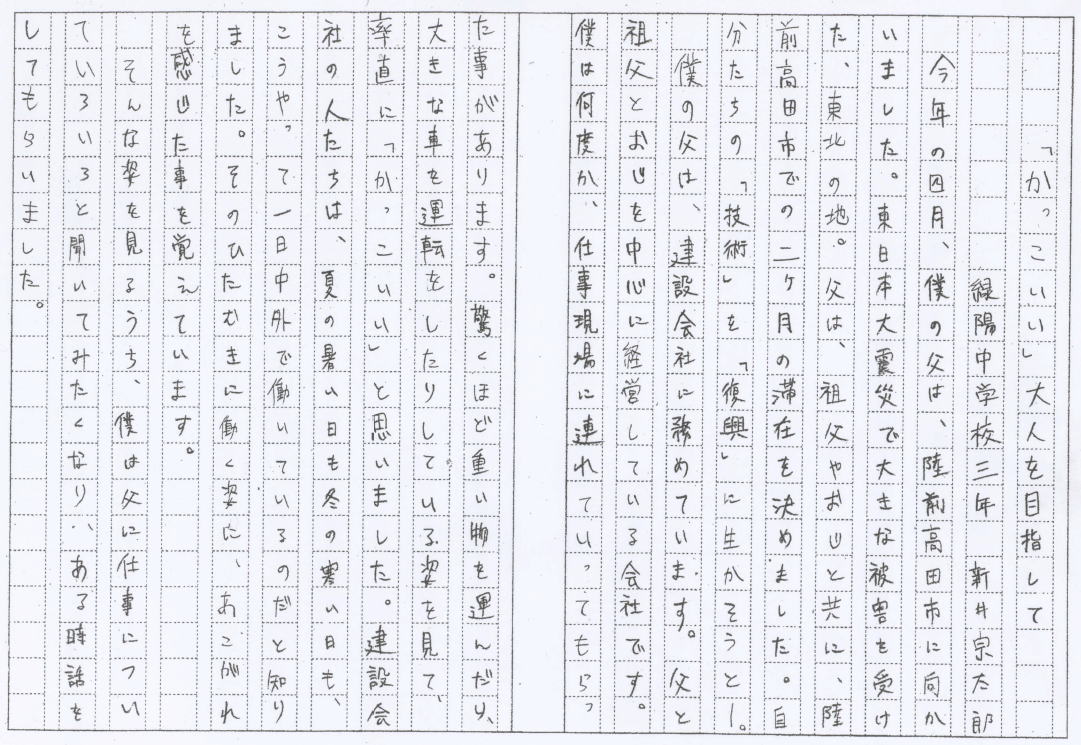 「かっこいい」大人を目指して
緑陽中学校三年　新井宗太郎
今年の四月、僕の父は、陸前高田市に向か
いました。東日本大震災で大きな被害を受け
た、東北の地。父は、祖父やおじと共に、陸
前高田市での二ヶ月の滞在を決めました。自
分たちの「技術」を「復興」に生かそうと—。
僕の父は、建設会社に務めています。父と
祖父とおじを中心に経営している会社です。
僕は何度か、仕事現場に連れていってもらっ
た事があります。驚くほど重い物を運んだり、
大きな車を運転をしたりしている姿を見て、
率直に「かっこいい」と思いました。建設会
社の人たちは、夏の暑い日も冬の寒い日も、
こうやって一日中外で働いているのだと知り
ました。そのひたむきに働く姿に、あこがれ
を感じた事を覚えています。
そんな姿を見るうち、僕は父に仕事につい
ていろいろと聞いてみたくなり、ある時話を
してもらいました。